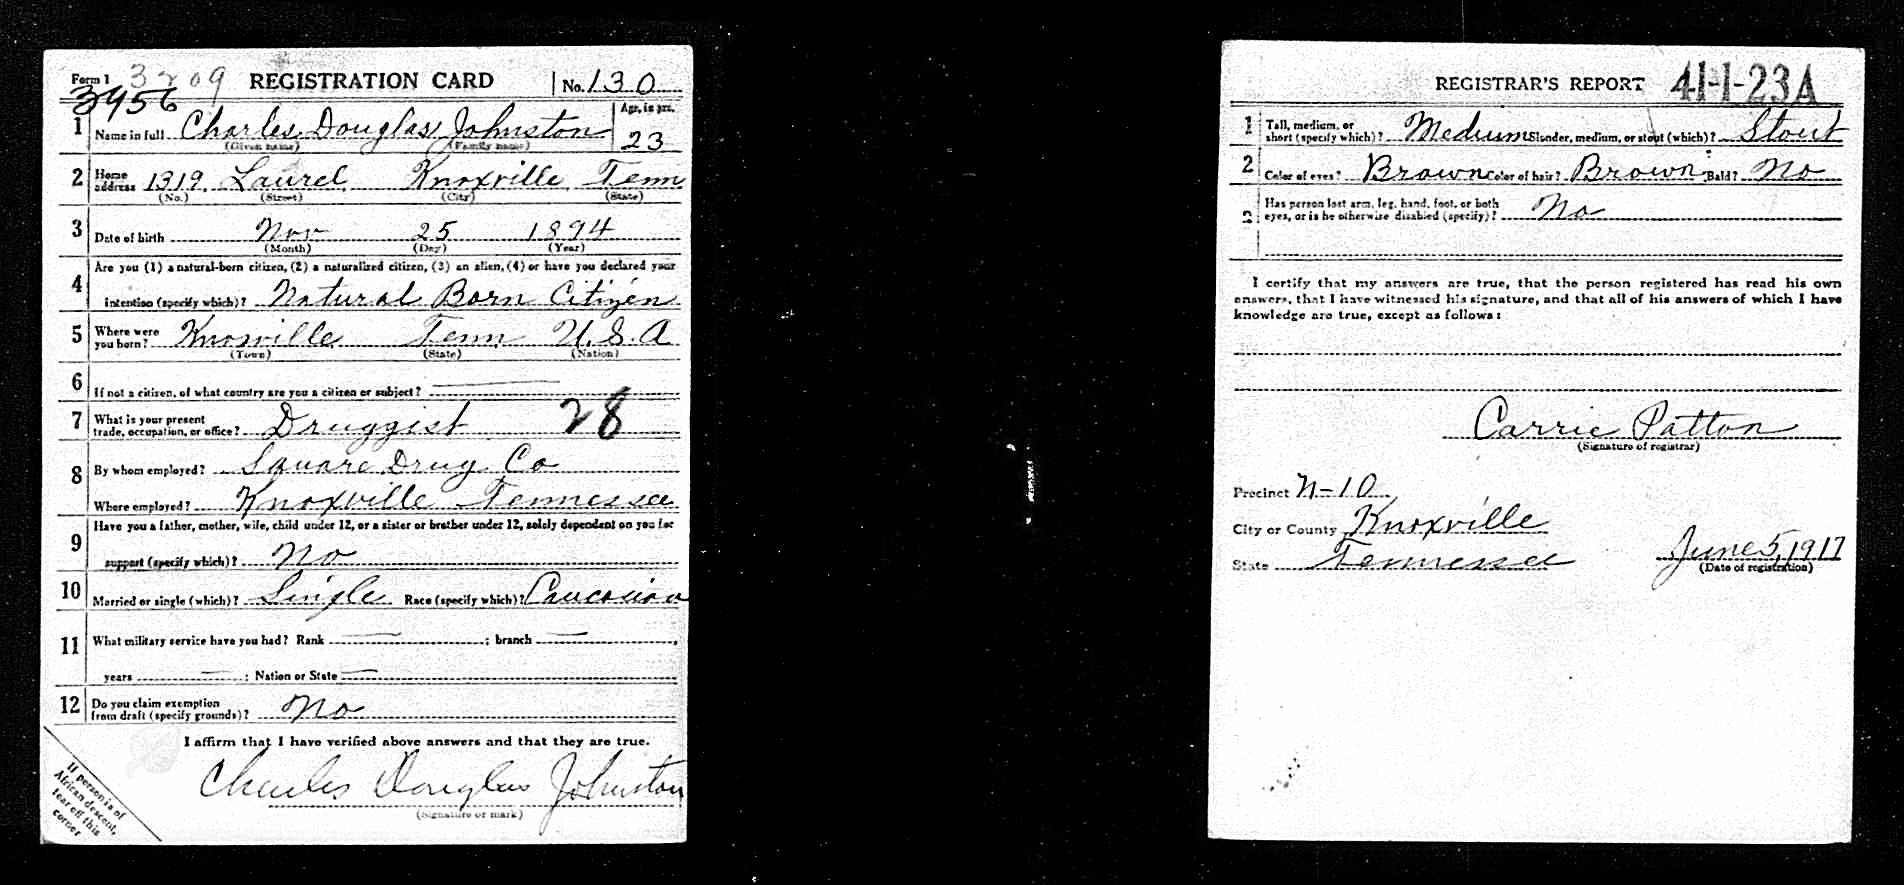 Form 1 3209 REGISTRATION CARD No. 130
3456
1 Name in full Charles Douglas Johnston Age, in yrs. 23
(Given name) (Family name)
2 Home address 1319 Laurel Knoxville Tenn
(No.) (Street) (City) (State)
3 Date of birth Nov 25 1894
(Month) (Day) (Year)
4 Are you (1) a natural-born citizen, (2) a naturalized citizen, (3) an alien, (4) or have you declared your
intention (specify which)? Natural Born Citizen
5 Where were you born? Knoxville Tenn U.S.A
(Town) (State) (Nation)
6 If not a citizen, of what country are you a citizen or subject?
7 What is your present trade, occupation, or office? Druggist 28
8 By whom employed? Square Drug Co
Where employed? Knoxville Tennessee
9 Have you a father, mother, wife, child under 12, or a sister or brother under 12, solely dependent on you for
support (specify which)? No
10 Married or single (which)? Single Race (specify which)? Caucasian
11 What military service have you had? Rank ; branch ,
years ; Nation or State
12 Do you claim exemption from draft (specify grounds)? No
I affirm that I have verified above answers and that they are true.
Charles Douglas Johnston
(Signature or mark)
If person is of
African descent,
tear off this
corner
REGISTRAR'S REPORT 41-1-23A
1 Tall, medium, or short (specify which)? Medium Slender, medium, or stout (which)? Stout
2 Color of eyes? Brown Color of hair? Brown Bald? No
3 Has person lost arm, leg, hand, foot, or both eyes, or is he otherwise disabled (specify)? No
I certify that my answers are true, that the person registered has read his own
answers, that I have witnessed his signature, and that all of his answers of which I have
knowledge are true, except as follows:
Carrie Patton
(Signature of registrar)
Precinct N-10
City or County Knoxville
State Tennessee June 5, 1917
(Date of registration)